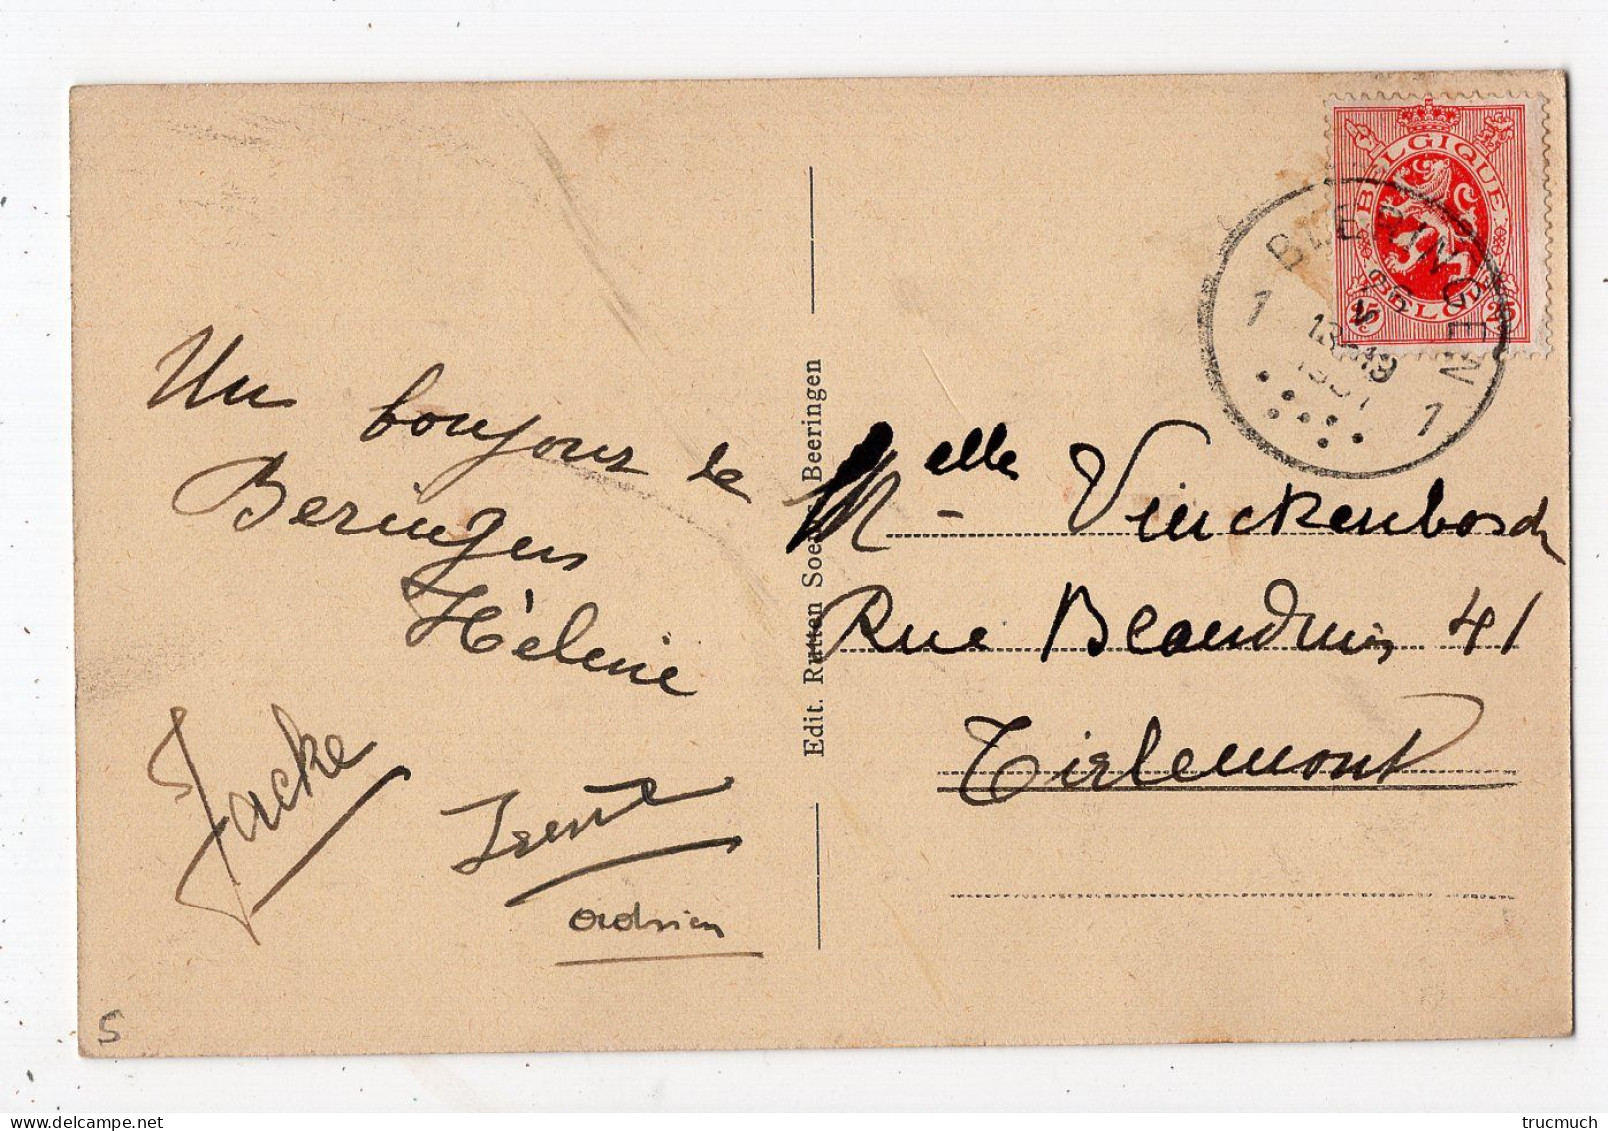 Un bonjour de
Beringen
Hélène
Jacke
Irène
Adrien
5
Edit. Rutten Soeurs Beeringen
BELGIQUE
BELGIË
BEERINGEN
1 1
13-13
Melle Vinckenbosch
Rue Beauduin, 41
Tirlemont
trucmuch